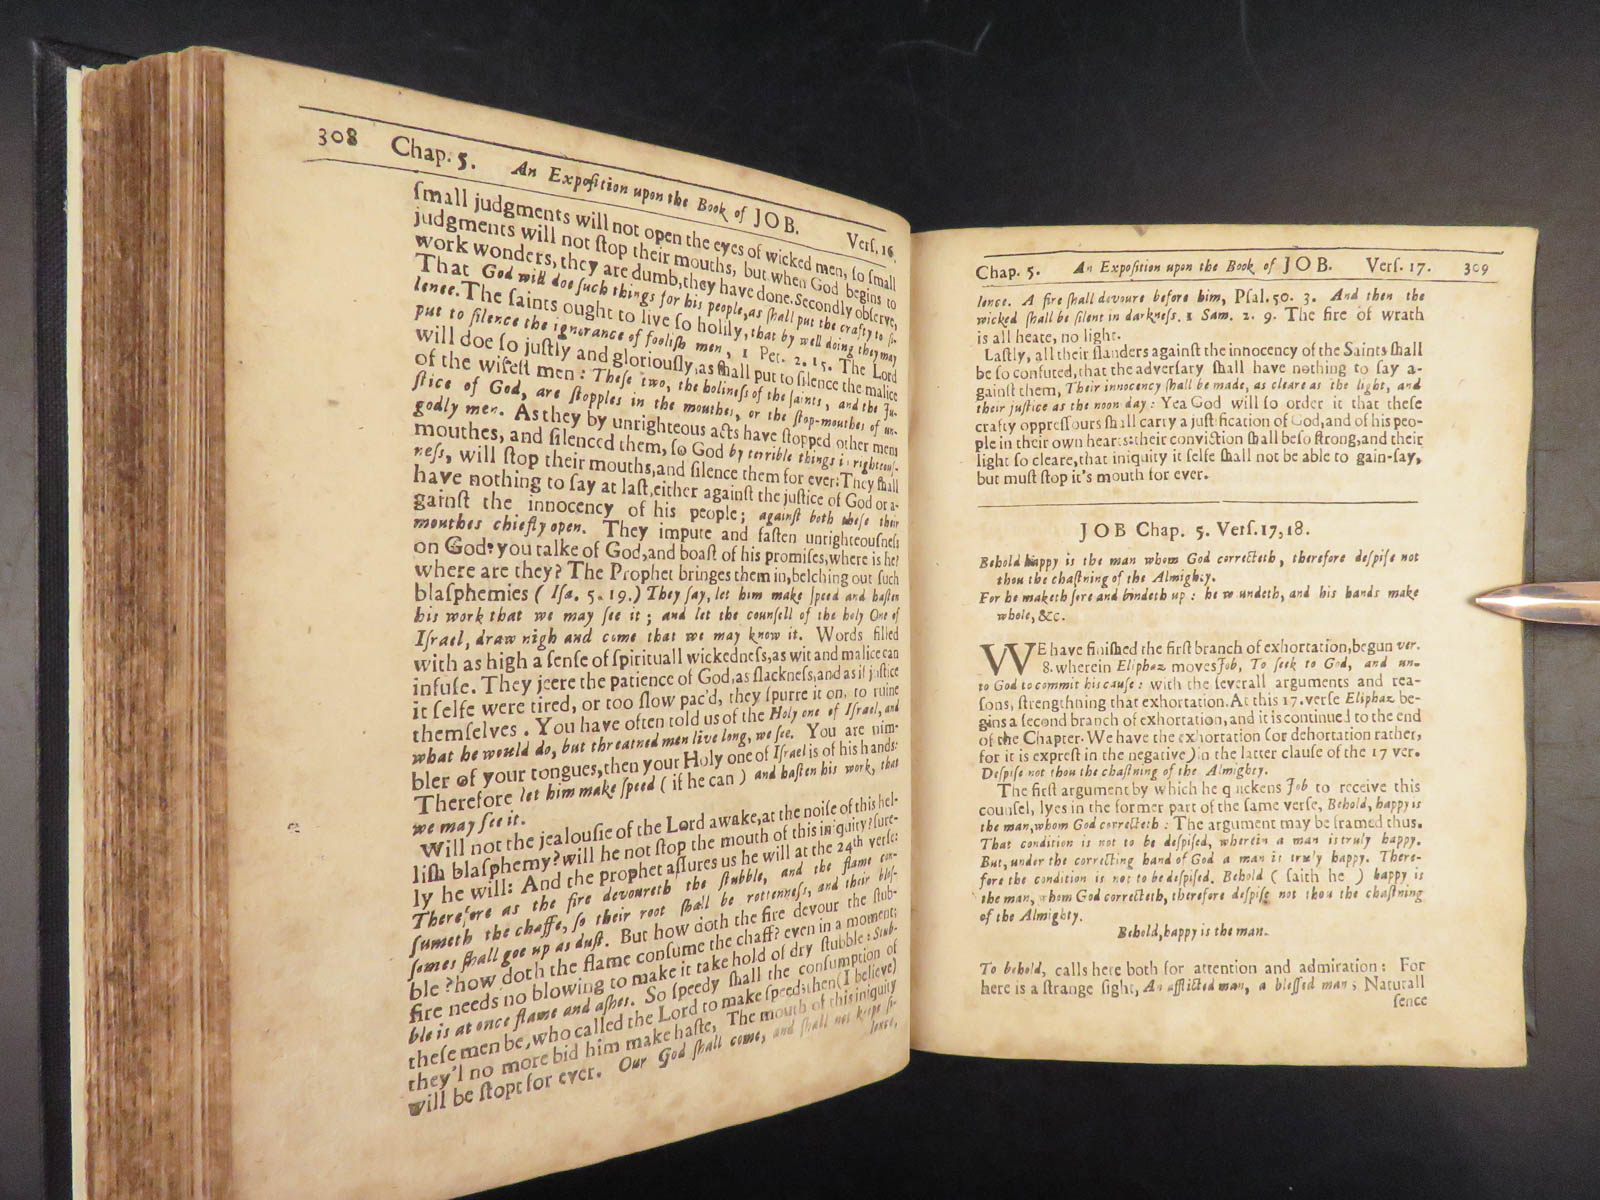 308 Chap. 5. An Expoſition upon the Book of JOB. Verſ. 16.
ſmall judgments will not open the eyes of wicked men, ſo ſmall
judgments will not ſtop their mouths, but when God begins to
work wonders, they are dumb, they have done. Secondly obſerve,
That God will doe ſuch things for his people, as ſhall put the crafty to ſi-
lence. The ſaints ought to live ſo holily, that by well doing they may
put to ſilence the ignorance of fooliſh men, 1 Pet. 2. 15. The Lord
will doe ſo juſtly and gloriouſly, as ſhall put to ſilence the malice
of the wiſeſt men: Theſe two, the holineſs of the ſaints, and the Ju-
ſtice of God, are ſtopples in the mouthes, or the ſtop-mouthes of un-
godly men. As they by unrighteous acts have ſtopped other mens
mouthes, and ſilenced them, ſo God by terrible things in righteouſ-
neſs, will ſtop their mouths, and ſilence them for ever: They ſhall
have nothing to ſay at laſt, either againſt the juſtice of God or a-
gainſt the innocency of his people; againſt both theſe their
mouthes chiefly open. They impute and faſten unrighteouſneſs
on God: you talke of God, and boaſt of his promiſes, where is he?
where are they? The Prophet brings them in, belching out ſuch
blaſphemies (Iſa. 5. 19.) They ſay, let him make ſpeed and haſten
his work that we may ſee it; and let the counſell of the holy One of
Iſrael, draw nigh and come that we may know it. Words filled
with as high a ſenſe of ſpirituall wickedneſs, as wit and malice can
infuſe. They jeere the patience of God, as ſlackneſs, and as if juſtice
it ſelfe were tired, or too ſlow pac'd, they ſpurre it on, to ruine
themſelves. You have often told us of the Holy one of Iſrael, and
what he would do, but threatned men live long, we ſee. You are nim-
bler of your tongues, then your Holy one of Iſrael is of his hands:
Therefore let him make ſpeed (if he can) and haſten his work, that
we may ſee it.
Will not the jealouſie of the Lord awake, at the noiſe of this hel-
liſh blaſphemy? will he not ſtop the mouth of this iniquity? ſure-
ly he will: And the prophet aſſures us he will at the 24th verſe:
Therefore as the fire devoureth the ſtubble, and the flame con-
ſumeth the chaffe, ſo their root ſhall be rottenneſs, and their bloſ-
ſomes ſhall goe up as duſt. But how doth the fire devour the ſtub-
ble? how doth the flame conſume the chaff? even in a moment;
fire needs no blowing to make it take hold of dry ſtubble: Stub-
ble is at once flame and aſhes. So ſpeedy ſhall the conſumption of
theſe men be, who called the Lord to make ſpeed; then (I believe)
they'l no more bid him make haſte, The mouth of this iniquity
will be ſtopt for ever. Our God ſhall come, and ſhall not keepe ſi-
lence,
Chap. 5. An Expoſition upon the Book of JOB. Verſ. 17. 309
lence. A fire ſhall devoure before him, Pſal. 50. 3. And then the
wicked ſhall be ſilent in darkneſs. 1 Sam. 2. 9. The fire of wrath
is all heate, no light.
Laſtly, all their ſlanders againſt the innocency of the Saints ſhall
be ſo confuted, that the adverſary ſhall have nothing to ſay a-
gainſt them, Their innocency ſhall be made, as cleare as the light, and
their juſtice as the noon day: Yea God will ſo order it that theſe
crafty oppreſſours ſhall carry a juſtification of God, and of his peo-
ple in their own hearts: their conviction ſhall be ſo ſtrong, and their
light ſo cleare, that iniquity it ſelfe ſhall not be able to gain-ſay,
but muſt ſtop it's mouth for ever.
JOB Chap. 5. Verſ. 17, 18.
Behold happy is the man whom God correcteth, therefore deſpiſe not
thou the chaſtning of the Almighty.
For he maketh ſore and bindeth up: he woundeth, and his hands make
whole, &c.
WE have finiſhed the firſt branch of exhortation, begun ver.
8. wherein Eliphaz moves Job, To ſeek to God, and un-
to God to commit his cauſe: with the ſeverall arguments and rea-
ſons, ſtrengthning that exhortation. At this 17. verſe Eliphaz be-
gins a ſecond branch of exhortation, and it is continued to the end
of the Chapter. We have the exhortation (or dehortation rather,
for it is expreſt in the negative) in the latter clauſe of the 17 ver.
Deſpiſe not thou the chaſtning of the Almighty.
The firſt argument by which he quickens Job to receive this
counſel, lyes in the former part of the ſame verſe, Behold, happy is
the man, whom God correcteth: The argument may be framed thus.
That condition is not to be deſpiſed, wherein a man is truly happy.
But, under the correcting hand of God a man is truly happy. There-
fore the condition is not to be deſpiſed, Behold (ſaith he) happy is
the man, whom God correcteth, therefore deſpiſe not thou the chaſtning
of the Almighty.
Behold, happy is the man.
To behold, calls here both for attention and admiration: For
here is a ſtrange ſight, An afflicted man, a bleſſed man; Naturall
ſence